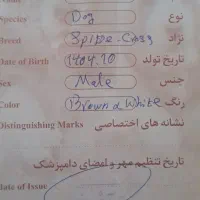 Species Dog نوع
Breed Spitz نژاد
Date of Birth 1404.70 تاریخ تولد
Sex Male جنس
Color Brown & White رنگ
Distinguishing Marks نشانه های اختصاصی
تاریخ تنظیم مهر و امضای دامپزشک
Date of Issue